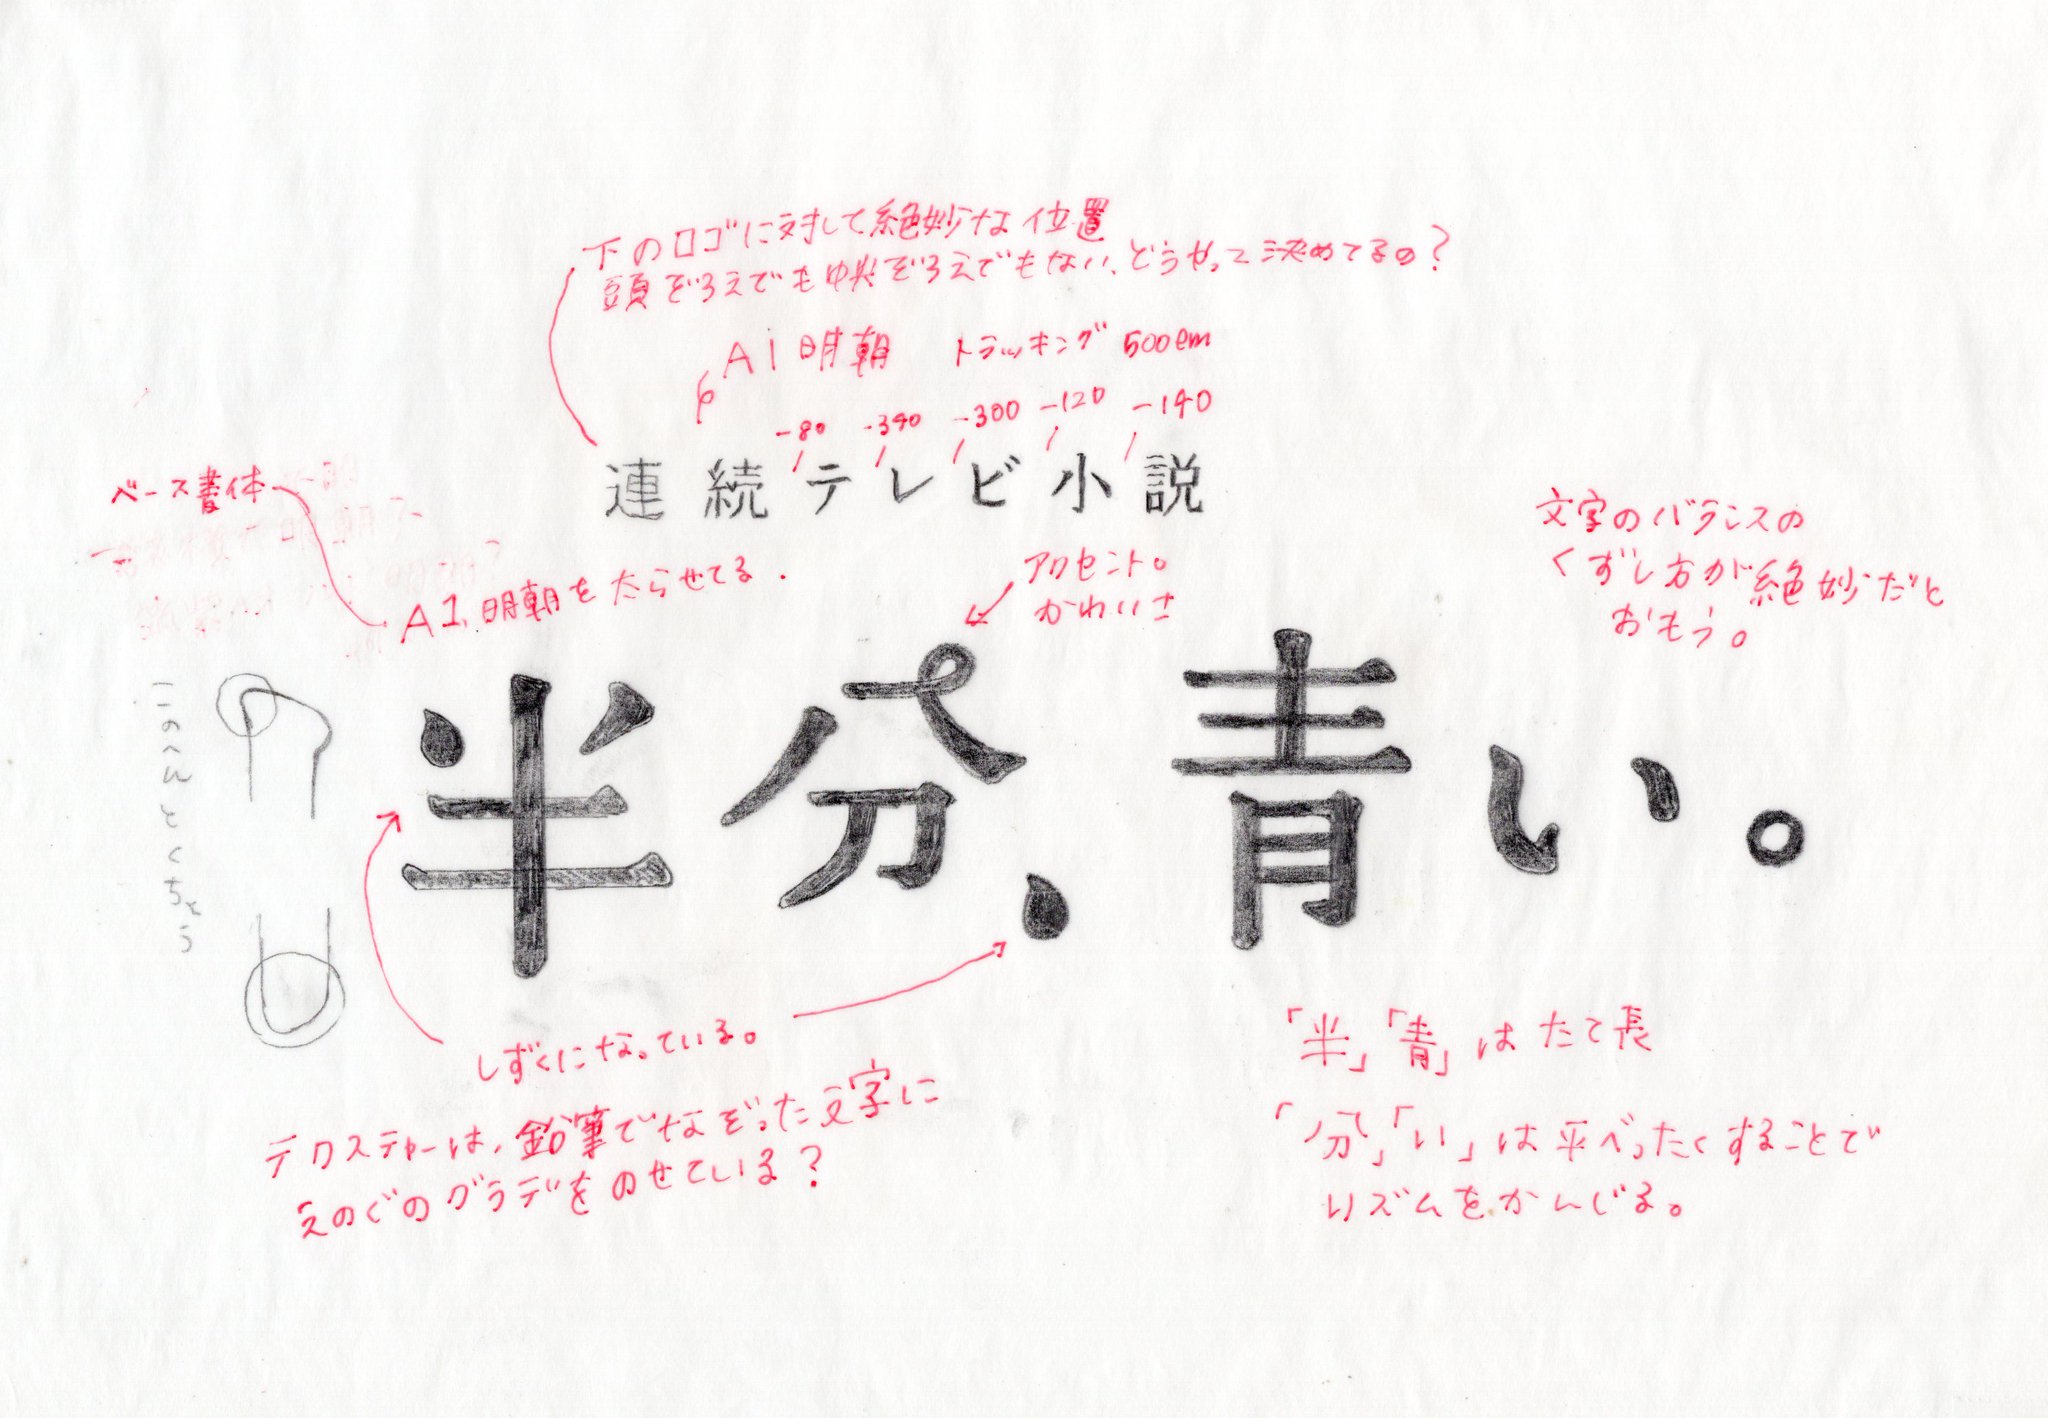 下のロゴに対して絶妙な位置
頭ぞろえでも中央ぞろえでもない、どうやって決めてるの?
A1明朝 トラッキング 500em
-80 -340 -300 -120 -140
連続テレビ小説
ベース書体
A1明朝を太らせてる.
アクセント。
かわいさ
文字のバランスの
くずし方が絶妙だと
おもう。
このへんとくちょう
半分、青い。
しずくになっている。
テクスチャーは、鉛筆でなぞった文字に
えのぐのグラデをのせている?
「半」「青」はたて長
「分」「い」は平べったくすることで
リズムをかんじる。